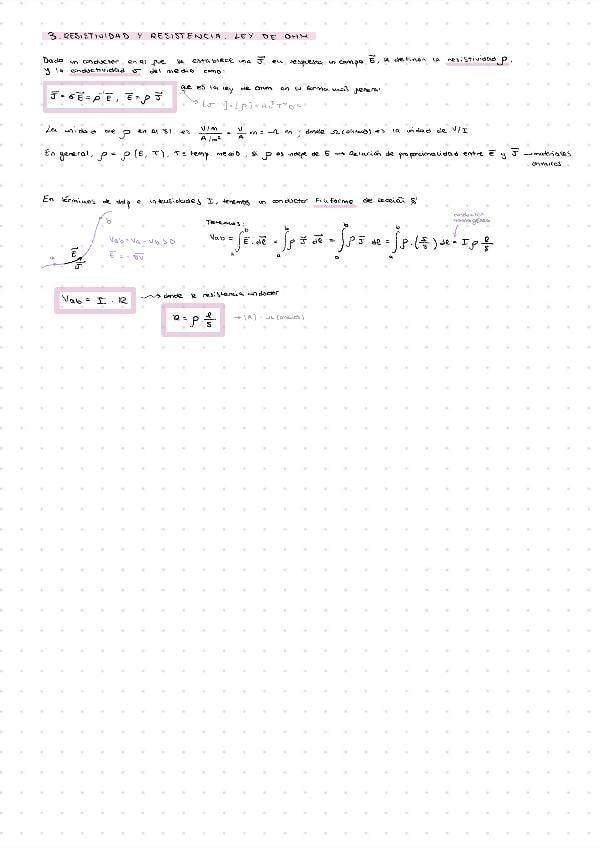 3. RESISTIVIDAD Y RESISTENCIA. LEY DE OHM
Dado un conductor, en el que se establece una J⃗ en respuesta un campo E⃗, se definen la resistividad ρ,
y la conductividad σ del medio como:
J⃗ = σE⃗ = ρ⁻¹E⃗, E⃗ = ρJ⃗ que es la ley de Ohm en su forma más general
La unidad de ρ en el SI es (V/m)/(A/m²) = V/A m = Ω·m; donde Ω (ohmios) es la unidad de V/I
En general, ρ = ρ(E, T), T = temp. medio, si ρ es indep de E → Relación de proporcionalidad entre E⃗ y J⃗ → materiales
óhmicos
En términos de ddp e intensidades I, tenemos un conductor filiforme de sección S
conductor
homogéneo
Tenemos:
Vab = ∫ₐᵇ E⃗·dℓ⃗ = ∫ₐᵇ ρ J⃗ dℓ⃗ = ∫ₐᵇ ρ J dℓ = ∫ₐᵇ ρ·(I/S) dℓ = I ρ ℓ/S
b
Vab = Va - Vb > 0
E⃗ = -∇V
E⃗
J⃗
a
Vab = I · R → donde R resistencia conductor
R = ρ ℓ/S → [R] = Ω (ohmios)